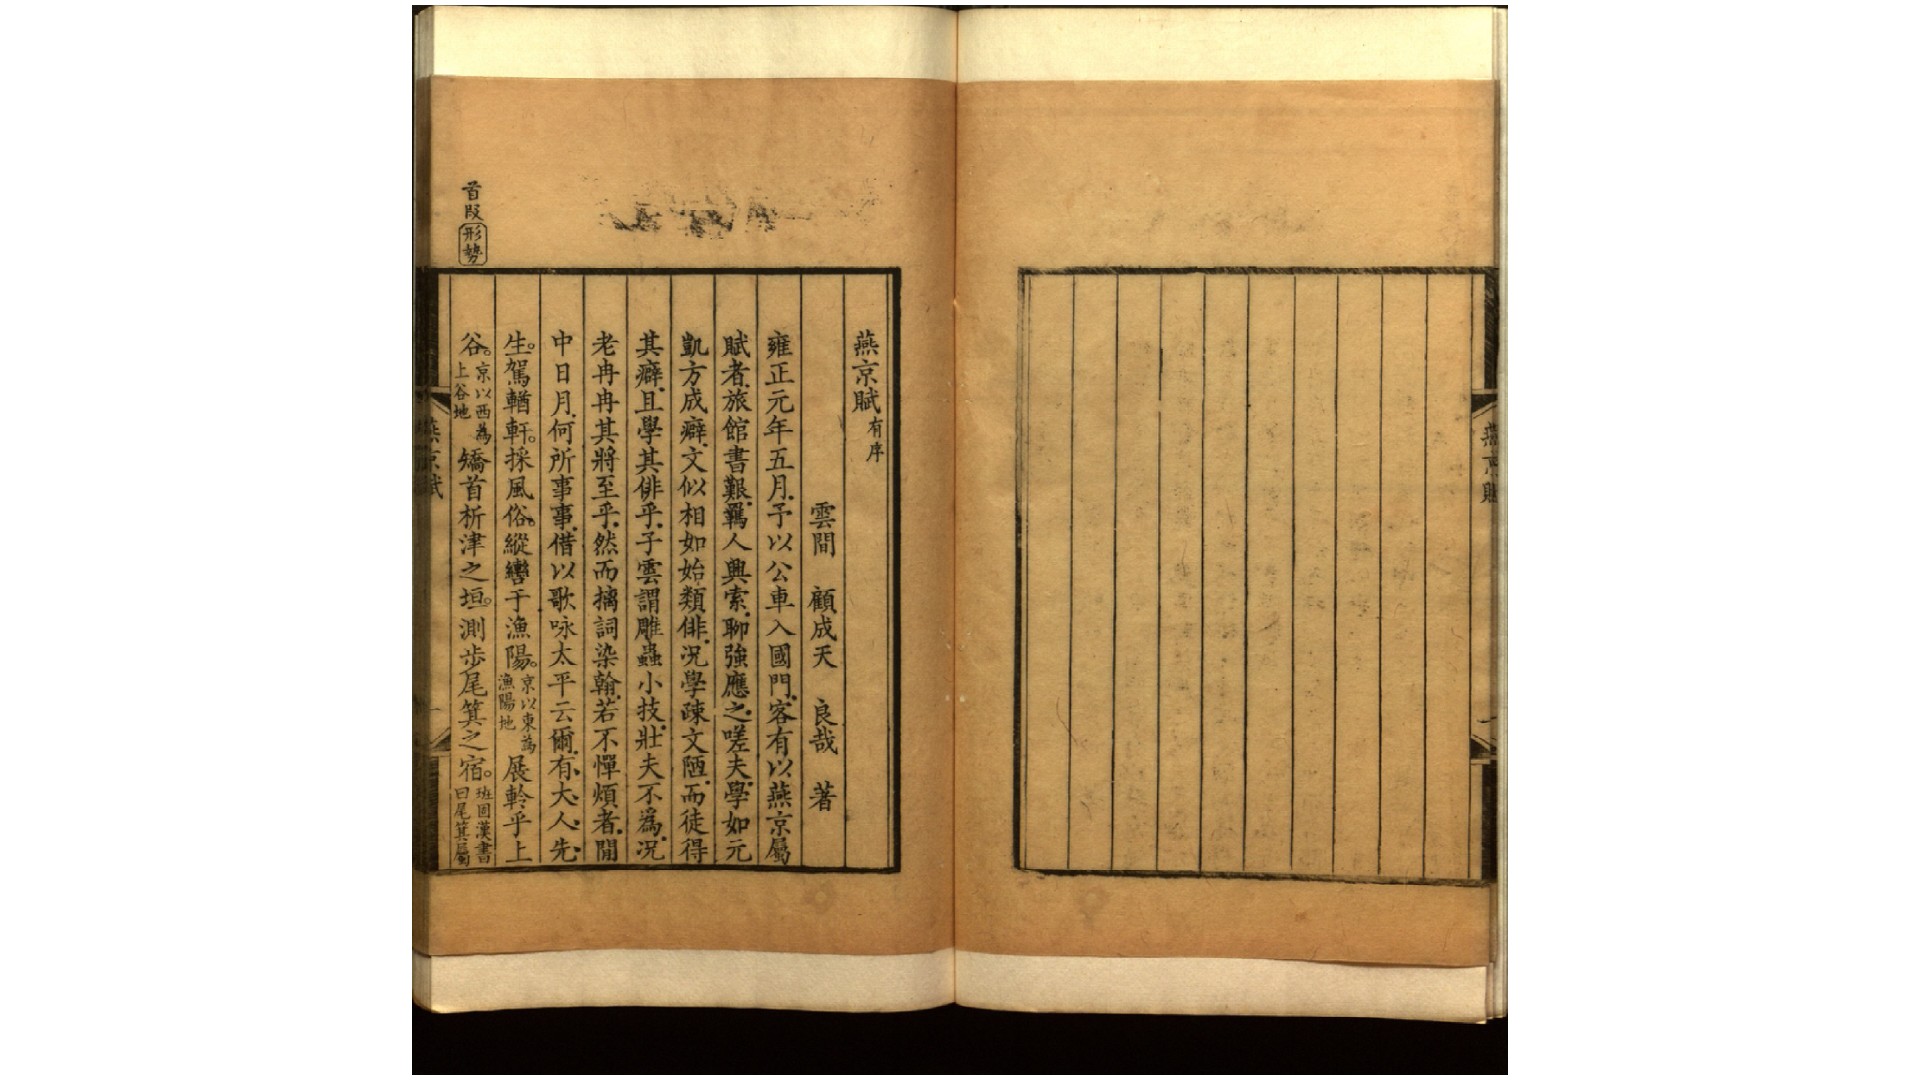 燕京賦有序
雲間 顧成天 良哉 著
雍正元年五月予以公車入國門客有以燕京屬
賦者旅館書艱羈人興索聊強應之嗟夫學如元
凱方成癖文似相如始類俳況學疎文陋而徒得
其癖且學其俳乎子雲謂雕蟲小技壯夫不為況
老冉冉其將至乎然而摛詞染翰若不憚煩者閒
中日月何所事事借以歌咏太平云爾有大人先
生駕輶軒採風俗縱轡于漁陽京以東為漁陽地展軨乎上
谷京以西為上谷地矯首析津之垣測步尾箕之宿班固漢書曰尾箕屬
首段形勢
燕京賦
燕京賦